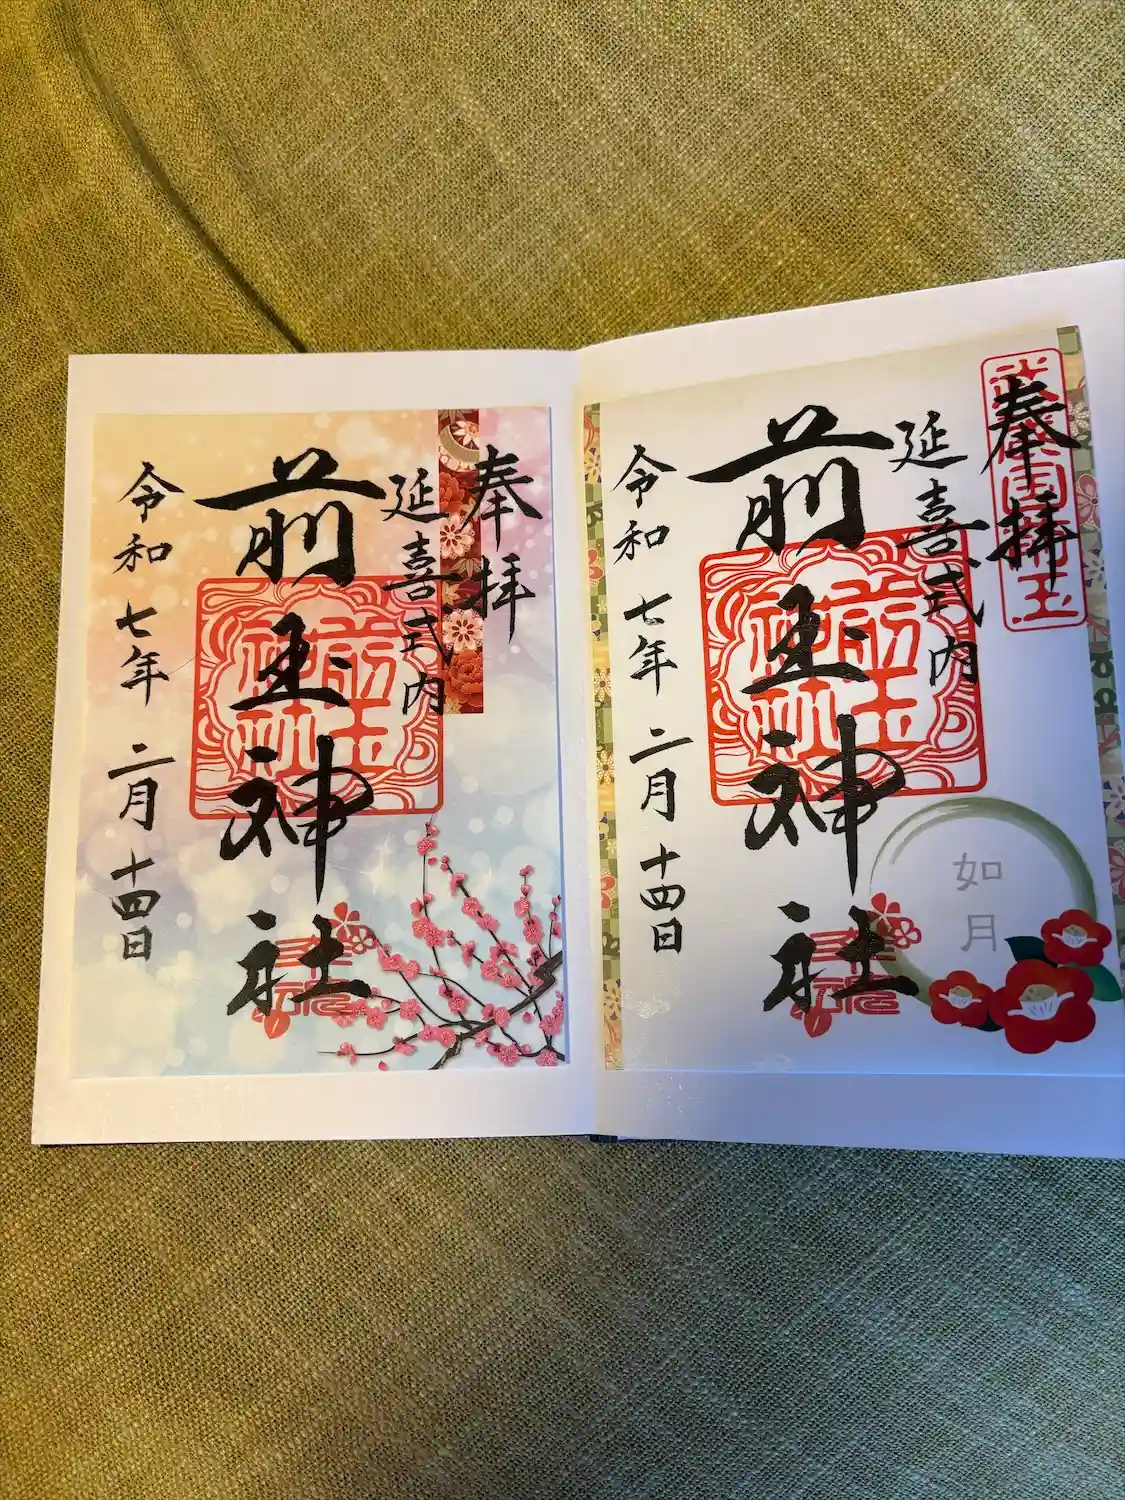 奉拝
延喜式内
前玉神社
令和七年二月十四日
前玉
神社
武蔵国埼玉
奉拝
延喜式内
前玉神社
令和七年二月十四日
前玉
神社
如月